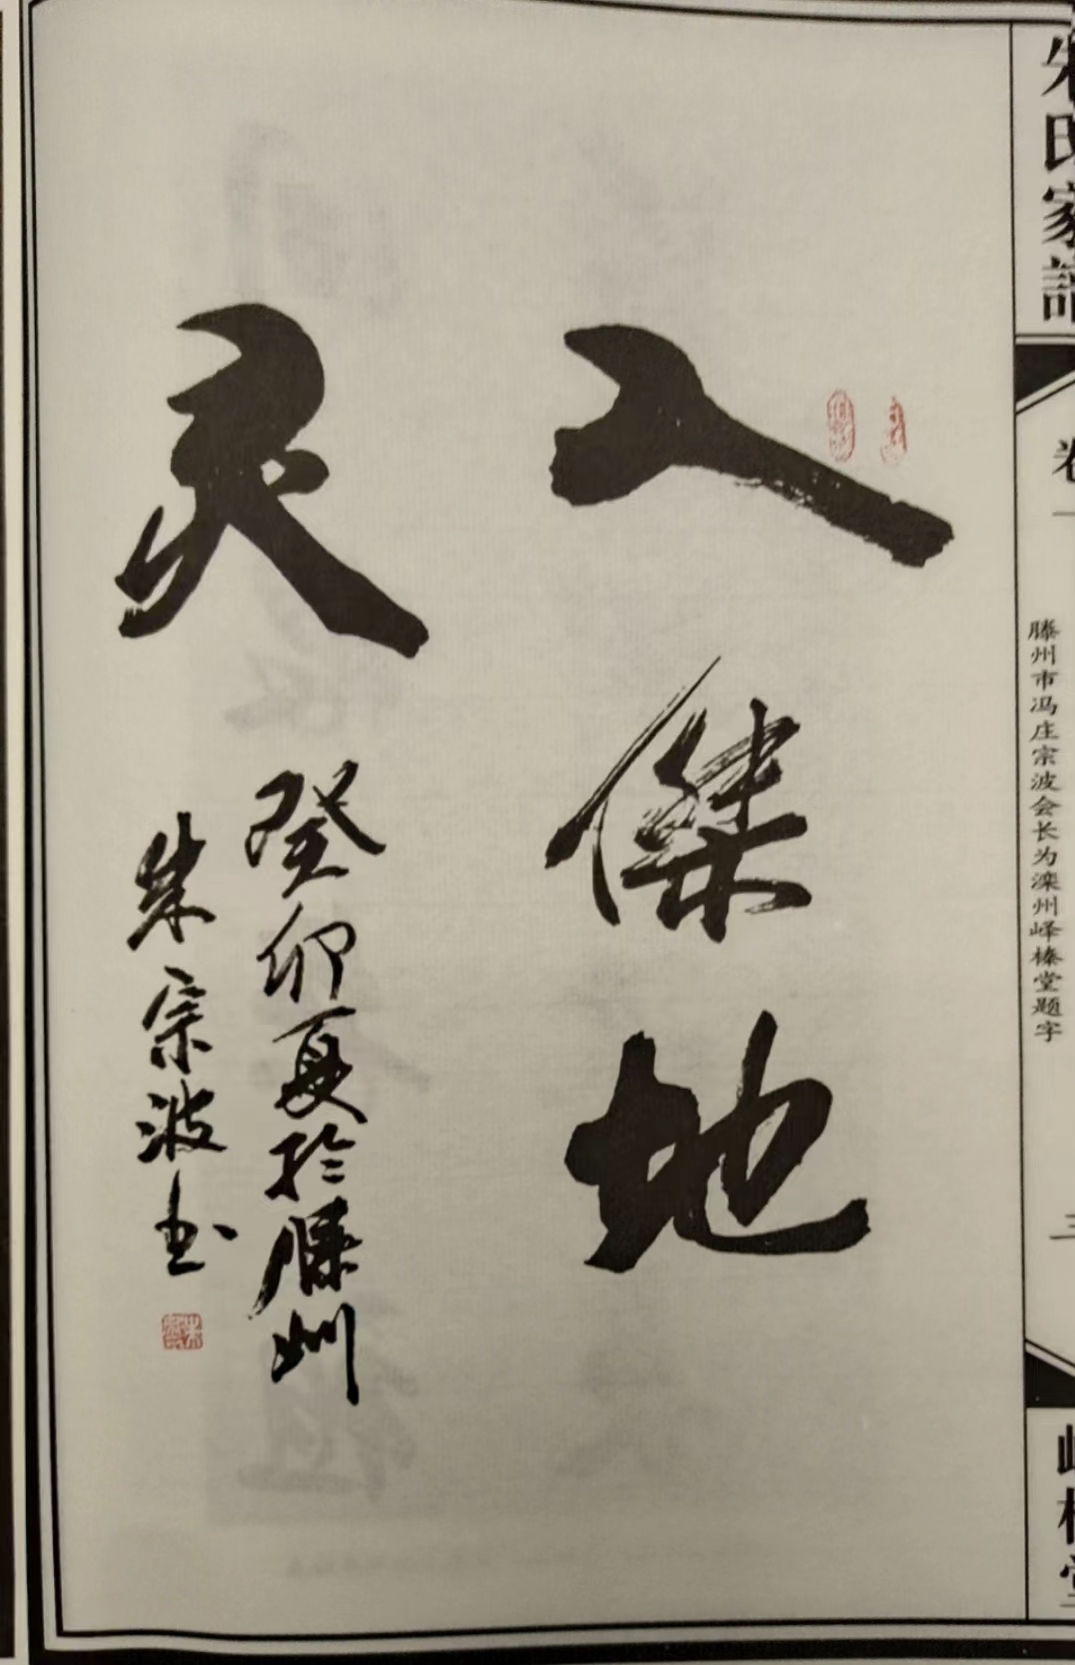 朱氏家譜
卷一
滕州市冯庄宗波会长为滦州峄榛堂题字
三
峄榛堂
人傑地
灵
癸卯夏於滕州
朱宗波书